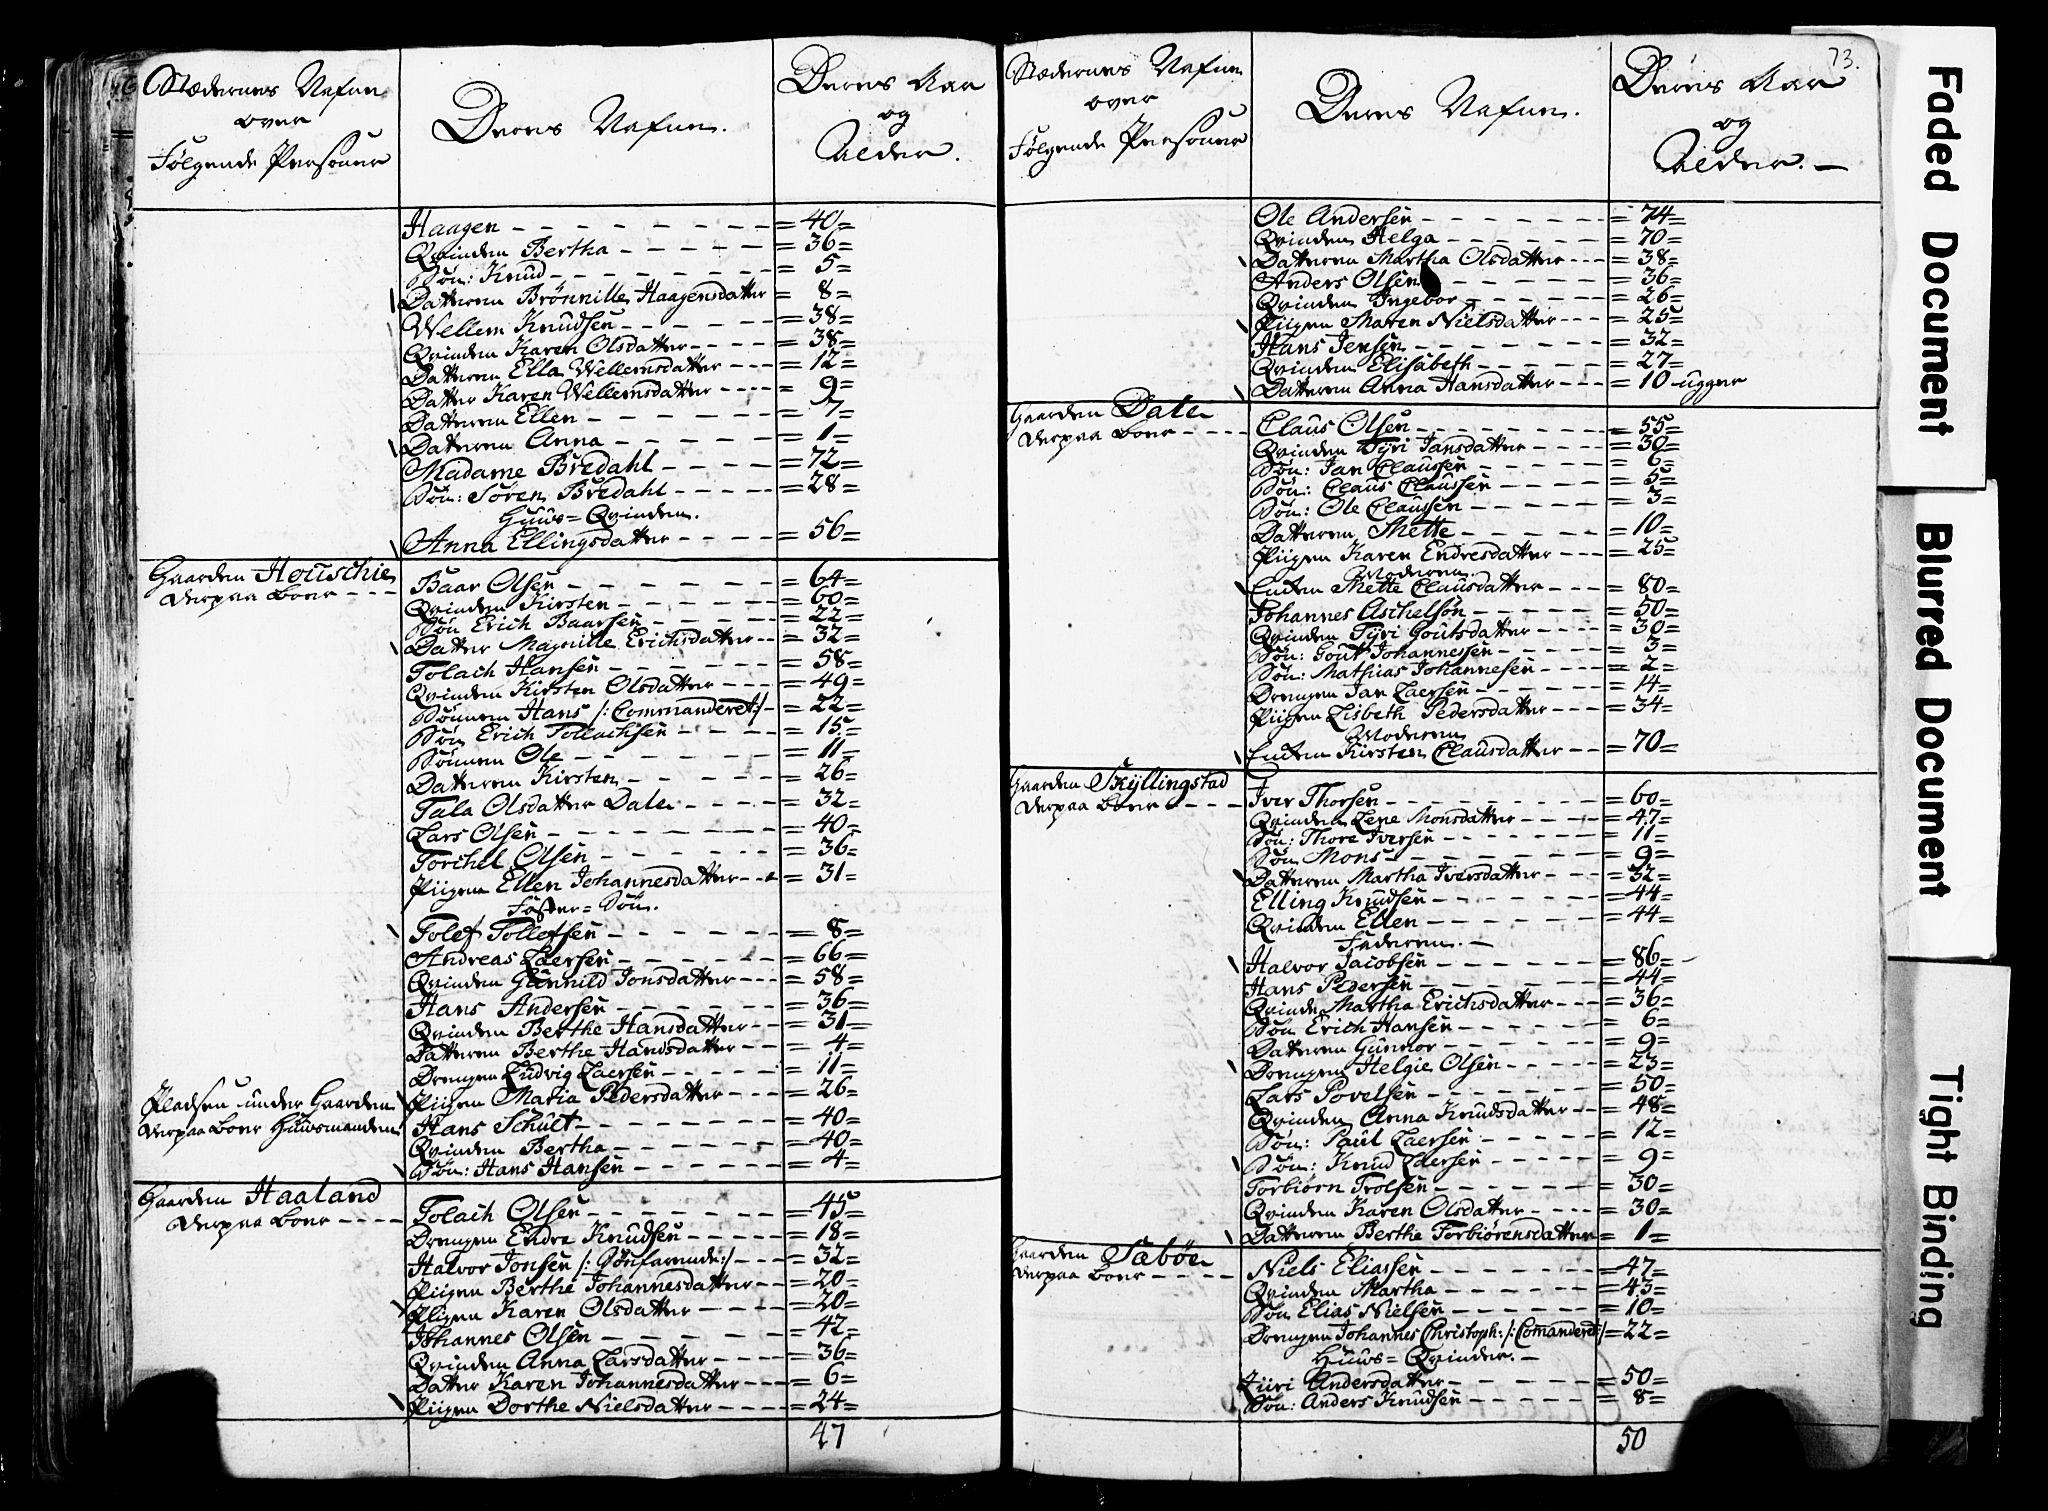 Stædernes Nafne
over
Følgende Personer
Deres Nafne.
Deres Aar
og
Alder.
Haagen = 40 =
Qvinden Bertha = 36 =
Søn: Knud = 5 =
Datteren Brönnille Haagensdatter = 8 =
Wellem Knudsen = 38 =
Qvinden Karen Olsdatter = 38 =
Datteren Ella Wellemsdatter = 12 =
Datter Karen Wellemsdatter = 9 =
Datteren Ellen = 7 =
Datteren Anna = 1 =
Madame Bredahl = 72 =
Søn: Sören Bredahl = 28 =
Huus = Qvinden.
Anna Ellingsdatter = 56 =
Gaarden Houschie
Derpaa boer
Baar Olsen = 64 =
Qvinden Kirsten = 60 =
Søn Erich Baarsen = 22 =
Datter Magnille Erichsdatter = 32 =
Tolach Hansen = 58 =
Qvinden Kirsten Olsdatter = 49 =
Sønnen Hans /: Commanderet :/ = 22 =
Søn Erich Tollachsen = 15 =
Sønnen Ole = 11 =
Datteren Kirsten = 26 =
Tala Olsdatter Dale = 32 =
Lars Olsen = 40 =
Torchel Olsen = 36 =
Piigen Ellen Johannesdatter = 31 =
Foster = Søn.
Tolef Tollefsen = 8 =
Andreas Laersen = 66 =
Qvinden Gunnild Jonsdatter = 58 =
Hans Andersen = 36 =
Qvinden Berthe Hansdatter = 31 =
Datteren Berthe Hansdatter = 4 =
Drengen Ludvig Laersen = 11 =
Piigen Maria Pedersdatter = 26 =
Pladsen under Gaarden
Derpaa boer Huusmanden
Hans Schult = 40 =
Qvinden Bertha = 40 =
Søn: Hans Hansen = 4 =
Gaarden Haaland
Derpaa boer
Tolach Olsen = 45 =
Drengen Endre Knudsen = 18 =
Halvor Jonsen /: Søefarende :/ = 32 =
Piigen Berthe Johannesdatter = 20 =
Piigen Karen Olsdatter = 20 =
Johannes Olsen = 42 =
Qvinden Anna Larsdatter = 36 =
Datter Karen Johannesdatter = 6 =
Piigen Dorthe Nielsdatter = 24 =
47
73.
Stædernes Nafne
over
Følgende Personer
Deres Nafne.
Deres Aar
og
Alder.
Ole Andersen = 74 =
Qvinden Helga = 70 =
Datteren Martha Olsdatter = 38 =
Anders Olsen = 36 =
Qvinden Ingebor = 26 =
Piigen Maren Nielsdatter = 25 =
Hans Jensen = 32 =
Qvinden Elisabeth = 27 =
Datteren Anna Hansdatter = 10 ugger
Gaarden Dale
Derpaa boer
Claus Olsen = 55 =
Qvinden Tyri Jansdatter = 30 =
Søn: Jan Claussen = 6 =
Søn: Claus Claussen = 5 =
Søn: Ole Claussen = 3 =
Datteren Mette = 10 =
Piigen Karen Endresdatter = 25 =
Moderen
Enken Mette Clausdatter = 80 =
Johannes Aschelsön = 50 =
Qvinden Tyri Goutsdatter = 30 =
Søn: Gout Johannessen = 3 =
Søn: Mathias Johannesen = 2 =
Drengen Jan Laersen = 14 =
Piigen Lisbeth Pedersdatter = 34 =
Moderen
Enken Kirsten Clausdatter = 70 =
Gaarden Skyllingstad
Derpaa boer
Iver Thorsen = 60 =
Qvinden Lene Monsdatter = 47 =
Søn: Thore Iversen = 11 =
Søn Mons = 9 =
Datteren Martha Iversdatter = 32 =
Elling Knudsen = 44 =
Qvinden Ellen = 44 =
Faderen.
Halvor Jacobsen = 86 =
Hans Pedersen = 44 =
Qvinden Martha Erichsdatter = 36 =
Søn Erich Hansen = 6 =
Datteren Gunnor = 9 =
Drengen Helgie Olsen = 23 =
Lars Povelsen = 50 =
Qvinden Anna Knudsdatter = 48 =
Søn: Paul Laersen = 12 =
Søn: Knud Laersen = 9 =
Torbiorn Trolsen = 30 =
Qvinden Karen Olsdatter = 30 =
Datteren Berthe Torbiörensdatter = 1 =
Gaarden Sæbøe
Derpaa boer
Niels Eliassen = 47 =
Qvinden Martha = 43 =
Søn Elias Nielsen = 10 =
Drengen Johannes Christoph: /: Comanderet :/ = 22 =
Huus = Qvinder.
Jiiri Andersdatter = 50 =
Søn: Anders Knudsen = 8 =
50
Faded Document
Blurred Document
Tight Binding